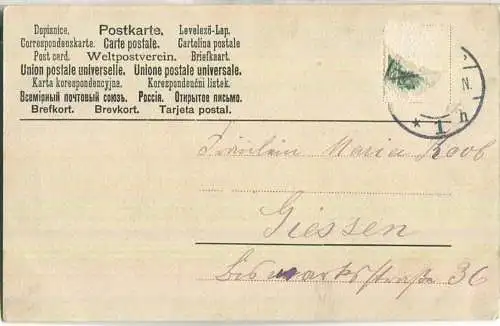 Dopisnice. Postkarte. Levelező-Lap.
Correspondenzkarte. Carte postale. Cartolina postale
Post card. Weltpostverein. Briefkaart.
Union postale universelle. Unione postale universale.
Karta korespondencyjna. Korespondenční listek.
Всемірный почтовый союзъ. Россія. Открытое письмо.
Brefkort. Brevkort. Tarjeta postal.
N.
* 1 h
Fräulein Maria Koob
Giessen
Bismarckstraße 36